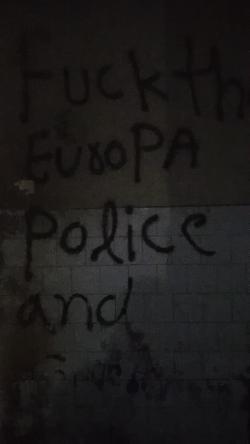 Fuck th
EuroPA
police
and